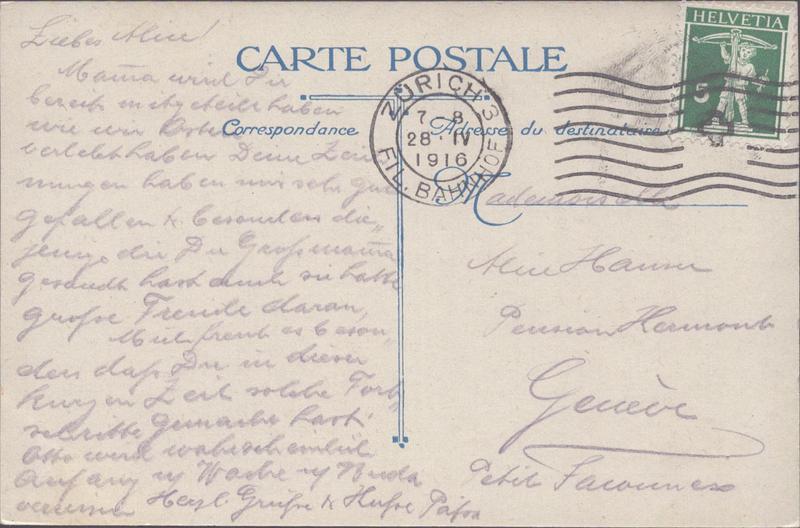 CARTE POSTALE
Correspondance
Adresse du destinataire
HELVETIA
5
ZÜRICH 3
7-8
28·IV
1916
FIL. BAHNHOF
Liebes Alice!
Mama wird Dir
bereits mitgeteilt haben
wie wir Ostern
verlebt haben Deine Zeich
nungen haben mir sehr gut
gefallen & besonders die„
jenige die Du Großmama
gesandt hast auch sie hatte
große Freude daran,
Mich freut es beson„
ders daß Du in dieser
kurzen Zeit solche Fort„
schritte gemacht hast.
Otto wird wahrscheinlich
Anfang Woche
Herzl. Grüße & Küße Papa
Mademoiselle
Alice Hauser
Pension Hermont
Genève
Petit